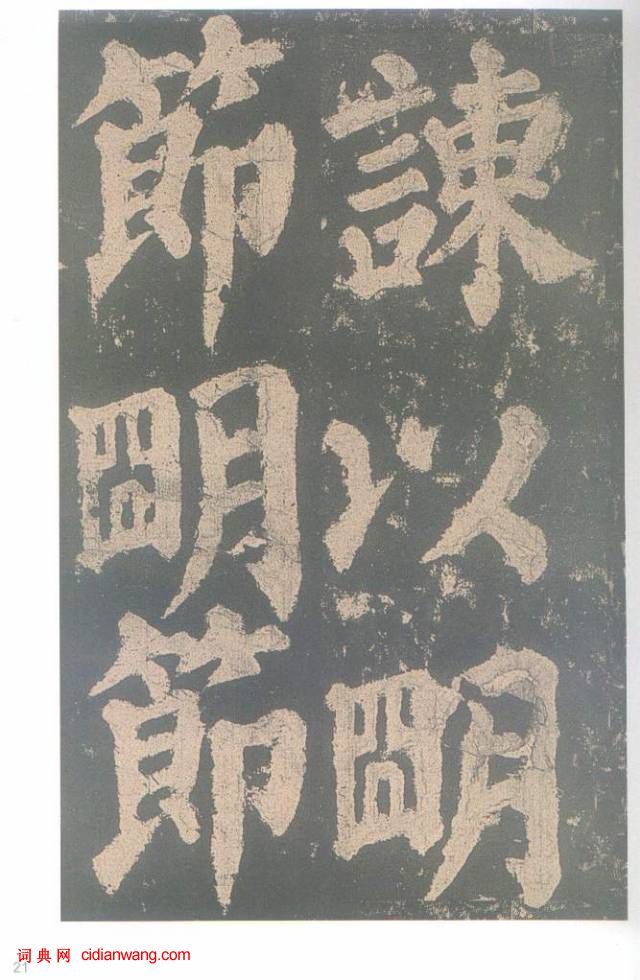 諫以朙
節朙節
21
词典网 cidianwang.com